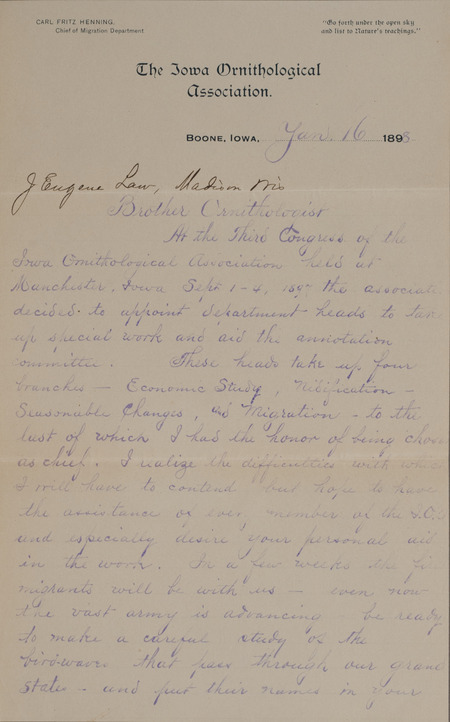 CARL FRITZ HENNING.
Chief of Migration Department
"Go forth under the open sky
and list to Nature's teachings."
The Iowa Ornithological
Association.
BOONE, IOWA, Jan. 16 1898
J Eugene Law, Madison Wis
Brother Ornithologist
At the Third Congress of the
Iowa Ornithological Association held at
Manchester, Iowa Sept 1-4, 1897 the associati
decided to appoint department heads to take
up special work and aid the annotation
committee. These heads take up four
branches — Economic Study, Nidification —
Seasonable Changes, and Migration - to the
last of which I had the honor of being chose
as chief. I realize the difficulties with which
I will have to contend but hope to have
the assistance of every member of the I.O.A
and especially desire your personal aid
in the work. In a few weeks the fi
migrants will be with us — even now
the vast army is advancing - be ready
to make a careful study of the
birdwaves that pass through our grand
state - and put their names in your